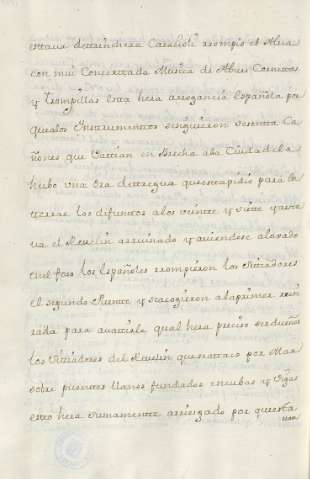 entava de trinchera Cavaiolí rrompio el Alva
con mui Concertada Muzica de Abues Cornettas
y Trompillas Esta hera arrogancia española por
que alos Instrumenttos singuieron ssesenta Ca
ñones que Vattian en Brecha ala Ciudadela
hubo una Ora de tregua que se pidió para en
tterrar los difuntos a los veintte y siette y astta
va el Revelin arruinado y aviendose alojado
en el foso los Españoles rrompieron los Sittiadores
el segundo Puentte y se acogieron ala primer
rada para qual hera preciso ser dueños
los Sittiadores del Revelin que se attaco por Mar
sobre puenttes llanos fundados en cubas y Vigas
estto hera sumamentte arriesgado por que esta
van